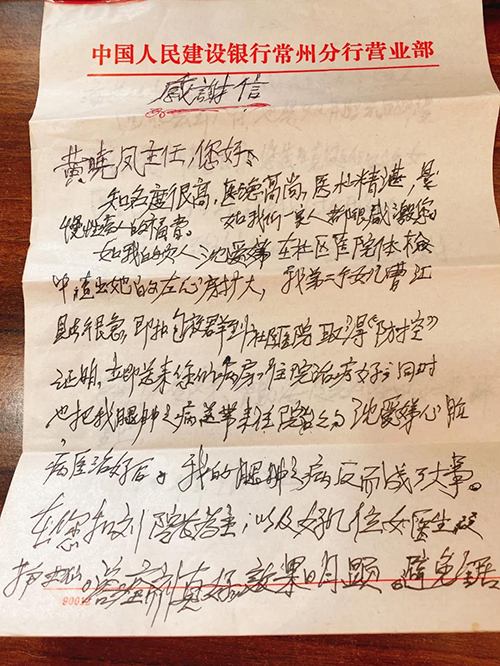 中国人民建设银行常州分行营业部
感謝信
黄晓凤主任,您好:
知名度很高,医德高尚,医术精湛,是
慢性病人的福音。如我们一家人都很感激您
如我的家人沈爱娣在社区医院体检
中查出她的左心房扩大,我第二个女儿曹江
很急,即和包校群到社区医院取得《防控》
证明,立即送来您们病房住院治疗好,同时
也把我腿肿之病送带来住院治之,沈爱娣心脏
病医治好后,我的腿肿之病反而成了大事。
在您和刘院长着重,以及好几位女医生
护士,真好,效果明显。避免